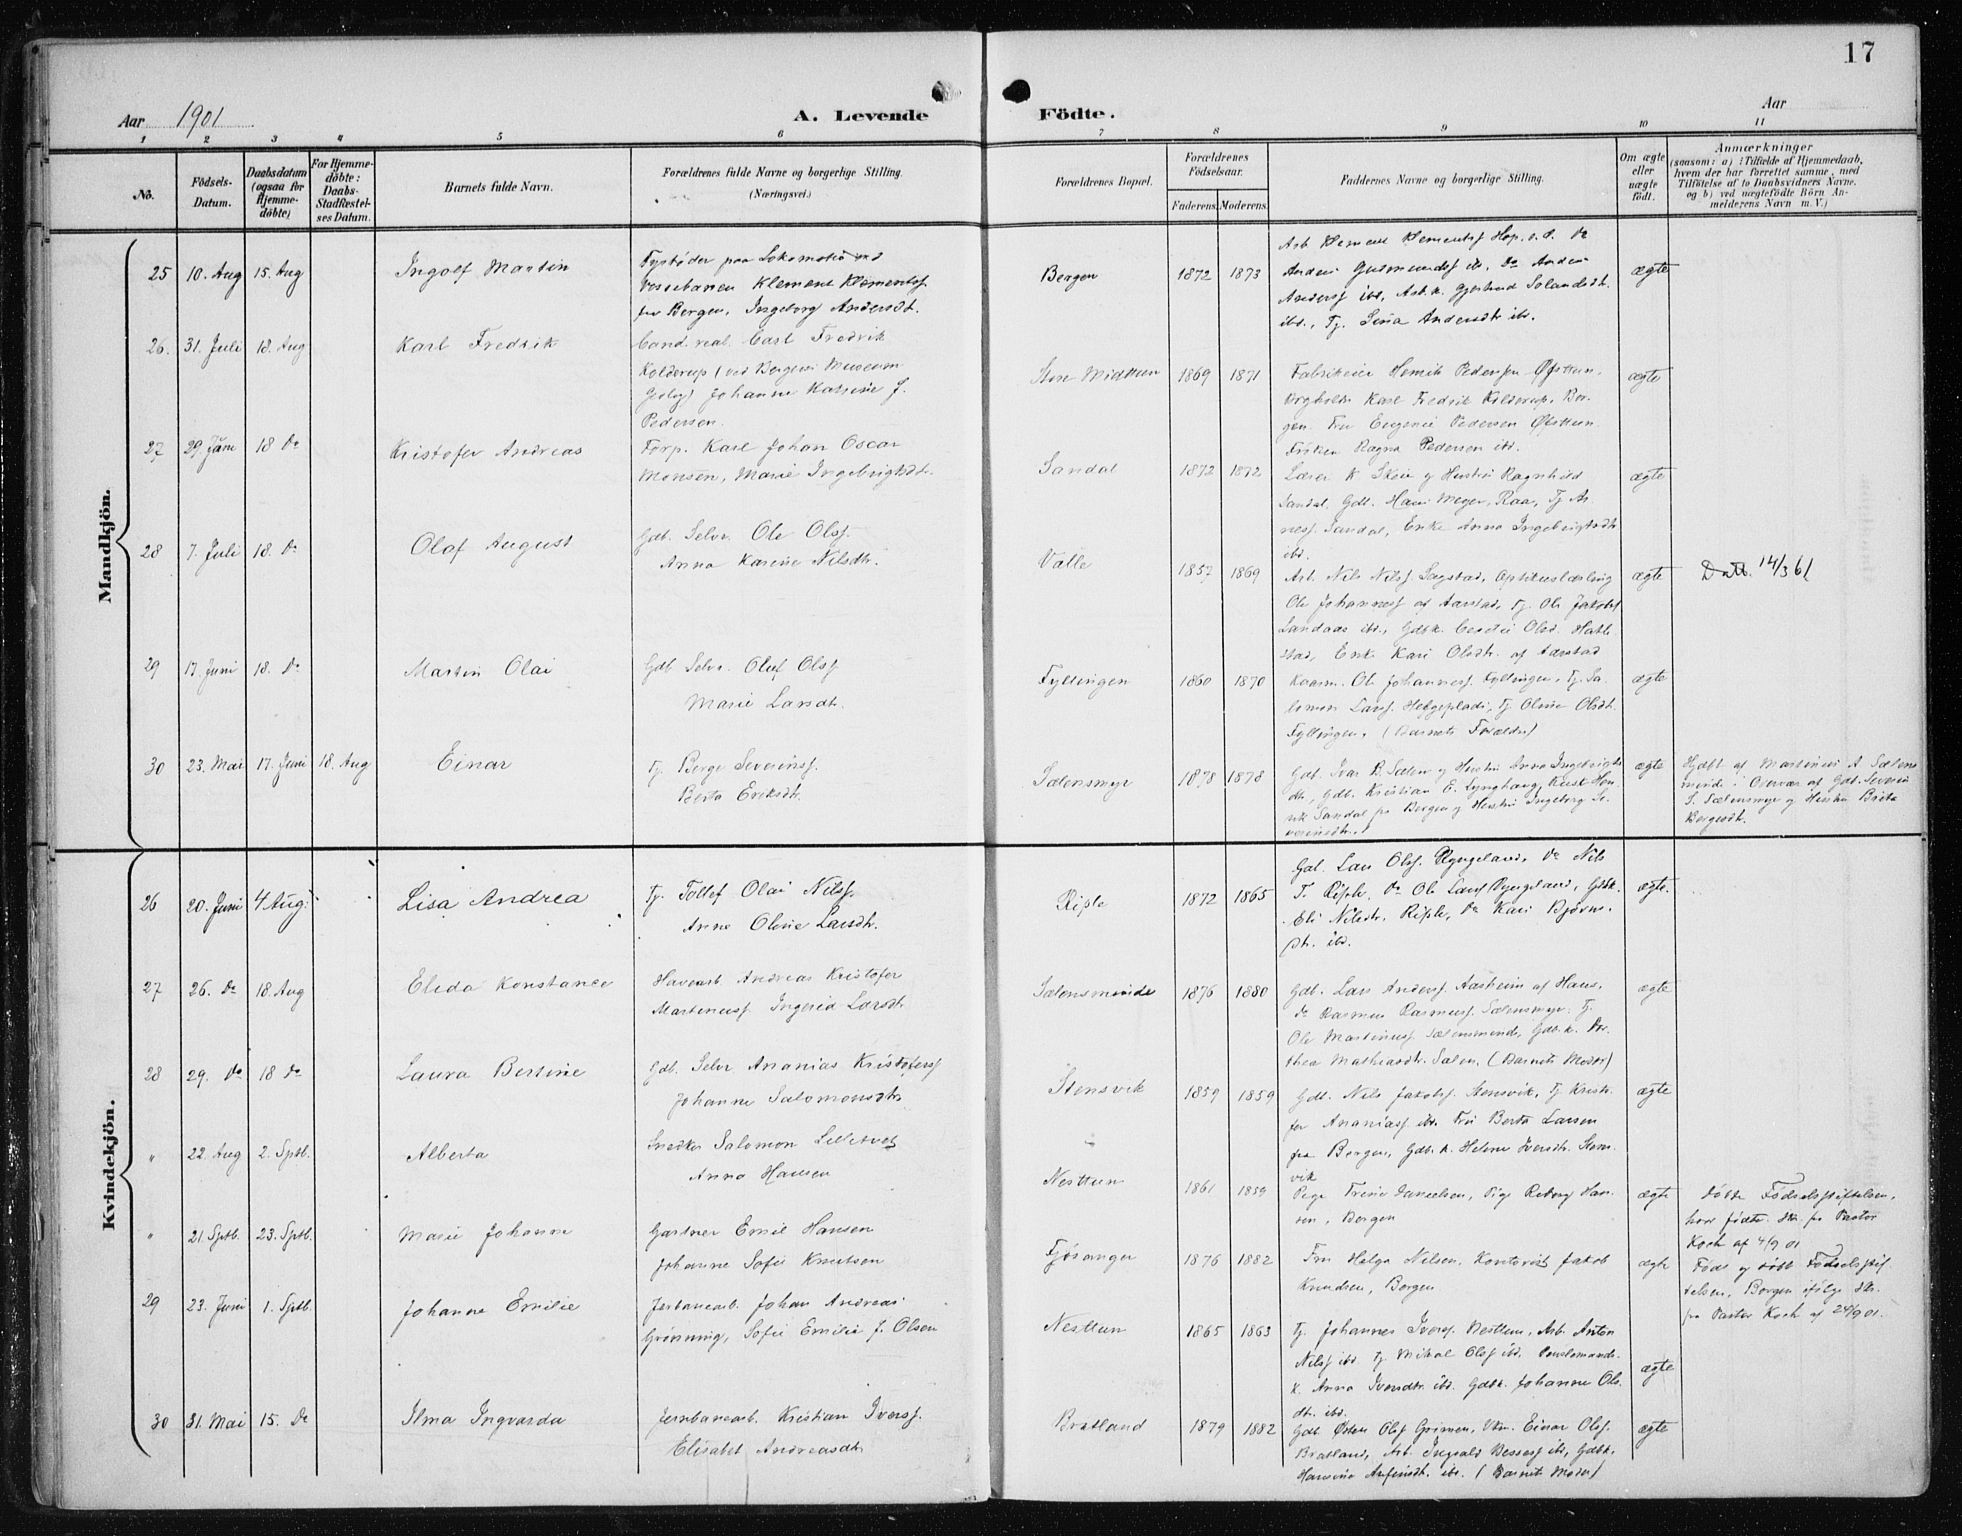 17
Aar 1901
A. Levende Födte.
Aar
1 2 3 4 5 6 7 8 9 10 11
No.
Födsels-
Datum.
Daabsdatum
(ogsaa for
Hjemme-
döbte)
For Hjemme-
döbte:
Daabs-
Stadfæstel-
ses Datum.
Barnets fulde Navn.
Forældrenes fulde Navne og borgerlige Stilling.
(Næringsvei.)
Forældrenes Bopæl.
Forældrenes
Födselsaar.
Faderens. Moderens.
Faddernes Navne og borgerlige Stilling.
Om ægte
eller
uægte
födt.
Anmærkninger
(saasom: a) i Tilfælde af Hjemmedaab,
hvem der har forrettet samme, med
Tilföielse af to Daabsvidners Navne.
og b) ved uægtefödte Börn An-
melderens Navn m. V.)
Mandkjön.
25 10. Aug 15. Aug
Ingolf Martin
Fyrbøder paa Lokomotiv ved
Vossebanen Klement Klementsf.
fra Bergen, Ingeborg Andersdt.
Bergen
1872 1873
Arb. Klement Klementsf Hop,
Andersf ibd, Arb.k. Gjertrud
ibd., Tj. Andersdtr ibd.
ægte
26. 31. Juli 18. Aug
Karl Fredrik
Cand. real. Carl Fredrik
Kolderup (ved Bergens Museum
Geolog) Johanne Katrine J.
Pedersen.
Store Midttun
1869 1871
Fabrikeier Henrik Pedersen Øvsttun,
Karl Fredrik Kolderup, Ber-
gen. Fru Eugenie Pedersen Øvsttun.
Frøken Ragna Pedersen ibd.
ægte
27 29. Juni 18 Do
Kristofer Andreas
Forp. Karl Johan Oscar
Monsen, Marie Ingebrigtsdt.
Sandal
1872 1872
Lærer K. Skeie og Hustru Ragnhild
Sandal, Gdb. Hans Meyer, Raa, Tj.
Sandal, Enke Anna Ingebrigtsdtr
ibd.
ægte
28 7. Juli 18. Do
Olaf August
Gdb. Selvr. Ole Olsf.
Anna Karine Nilsdtr.
Valle
1857 1869
Arb. Nils Nilsf Sagstad,
Ole Johannesf af Aarstad, Tj. Ole Jakobsf
Landaas ibd., Gdbk. Olsd.
Enke Kari Olsdtr. af Aarstad
ægte
14/3 61
29 17. Juni 18. Do
Martin Olai
Gdb. Selvr. Oluf Olsf
Marie Larsdtr.
Fyllingen
1860 1870
Kaarm. Ole Johannesf. Fyllingen, Tj. Sa-
lomon Larsf. Tj. Oline Olsdt.
Fyllingen. (Barnets Forældre)
ægte
30 23. Mai 17. Juni 18. Aug
Einar
Tj. Berge Severinsf.
Berta Eriksdt.
Sælensmyr
1878 1878
Gdb. Ivar B. Sælen og Hustru Anna Ingebrigts
dtr, Gdb. Kristian E. Lynghaug,
Sandal fra Bergen og Hustru Ingeborg Se-
verinsdtr.
ægte
Hjdbt af Martinus A Sælens
minde. Overvær af Gdb. Severin
S. Sælensmyr og Hustru Brita
Bergesdt.
Kvindekjön.
26 20. Juni 4 Aug.
Lisa Andrea
Tj. Tollef Olai Nilsf.
Anne Oline Larsdtr.
Riple
1872 1865
Gdb. Lars Olsf. Ryngeland, Do Nils
T. Riple, Do Ole Larsf Ryngeland, Gdbk.
Eli Nilsdtr. Riple, Do Kari Bjørns-
dtr. ibd.
ægte.
27 26. Do 18. Aug
Elida Konstance
Havearb. Andreas Kristofer
Martinusf. Ingerid Larsdtr
Sælensminde
1876 1880
Gdb. Lars Andersf. Aasheim af Haus,
Do Rasmus Rasmusf. Sælensmyr. Tj.
Ole Martinusf Sælensminde, Gdb.k. Do-
thea Mathiasdtr. Sælen. (Barnets Moder)
ægte
28 29. Do 18 Do
Laura Bertine
Gdb. Selvr Ananias Kristofersf
Johanne Salomonsdtr
Stensvik
1859 1859
Gdb. Nils Jakobsf. Stensvik, Tj Kristo-
fer Ananiasf. ibd. Fru Berta Larsen
fra Bergen, Gdb.k. Helene Iversdtr. Stens-
vik
ægte
" 22. Aug 2. Sptb.
Alberta
Snedker Salomon Lilletvedt
Anna Hansen
Nesttun
1861 1859
Pige Trine Danielsen, Pige Han-
sen, Bergen
ægte
Døbt Fødselsstiftelsen,
hvor født. Skr. fra Pastor
Koch af 4/9 01
" 21. Sptb. 23. Sptb.
Marie Johanne
Gartner Emil Hansen
Johanne Sofie Knutsen
Fjøsanger
1876 1882
Fru Helga Nilsen, Kontorist Jakob
Knudsen, Bergen
ægte
Født og døbt Fødselsstif-
telsen, Bergen ifølge Skr.
fra Pastor Koch af 24/9 01.
29 23. Juni 1. Sptb.
Johanne Emilie
Jernbanearb. Johan Andreas
Grønning, Sofie Emilie J. Olsen
Nesttun
1865 1863
Tj. Johannes Iversf. Nesttun, Arb. Anton
Nilsf ibd. Tj. Mikal Olsf ibd.
k. Anna Iversdtr ibd. Gdbk. Johanne Ols-
dtr. ibd.
ægte
30 31. Mai 15. Do
Ilma Ingvarda
Jernbanearb. Kristian Iversf.
Elisabet Andreasdtr
Bratland
1879 1882
Gdb. Østen Olsf Grimen, Ukm. Einar Olsf.
Bratland, Arb. Ingvald ibd, Gdbk.
Hansine ibd. (Barnets Moder)
ægte